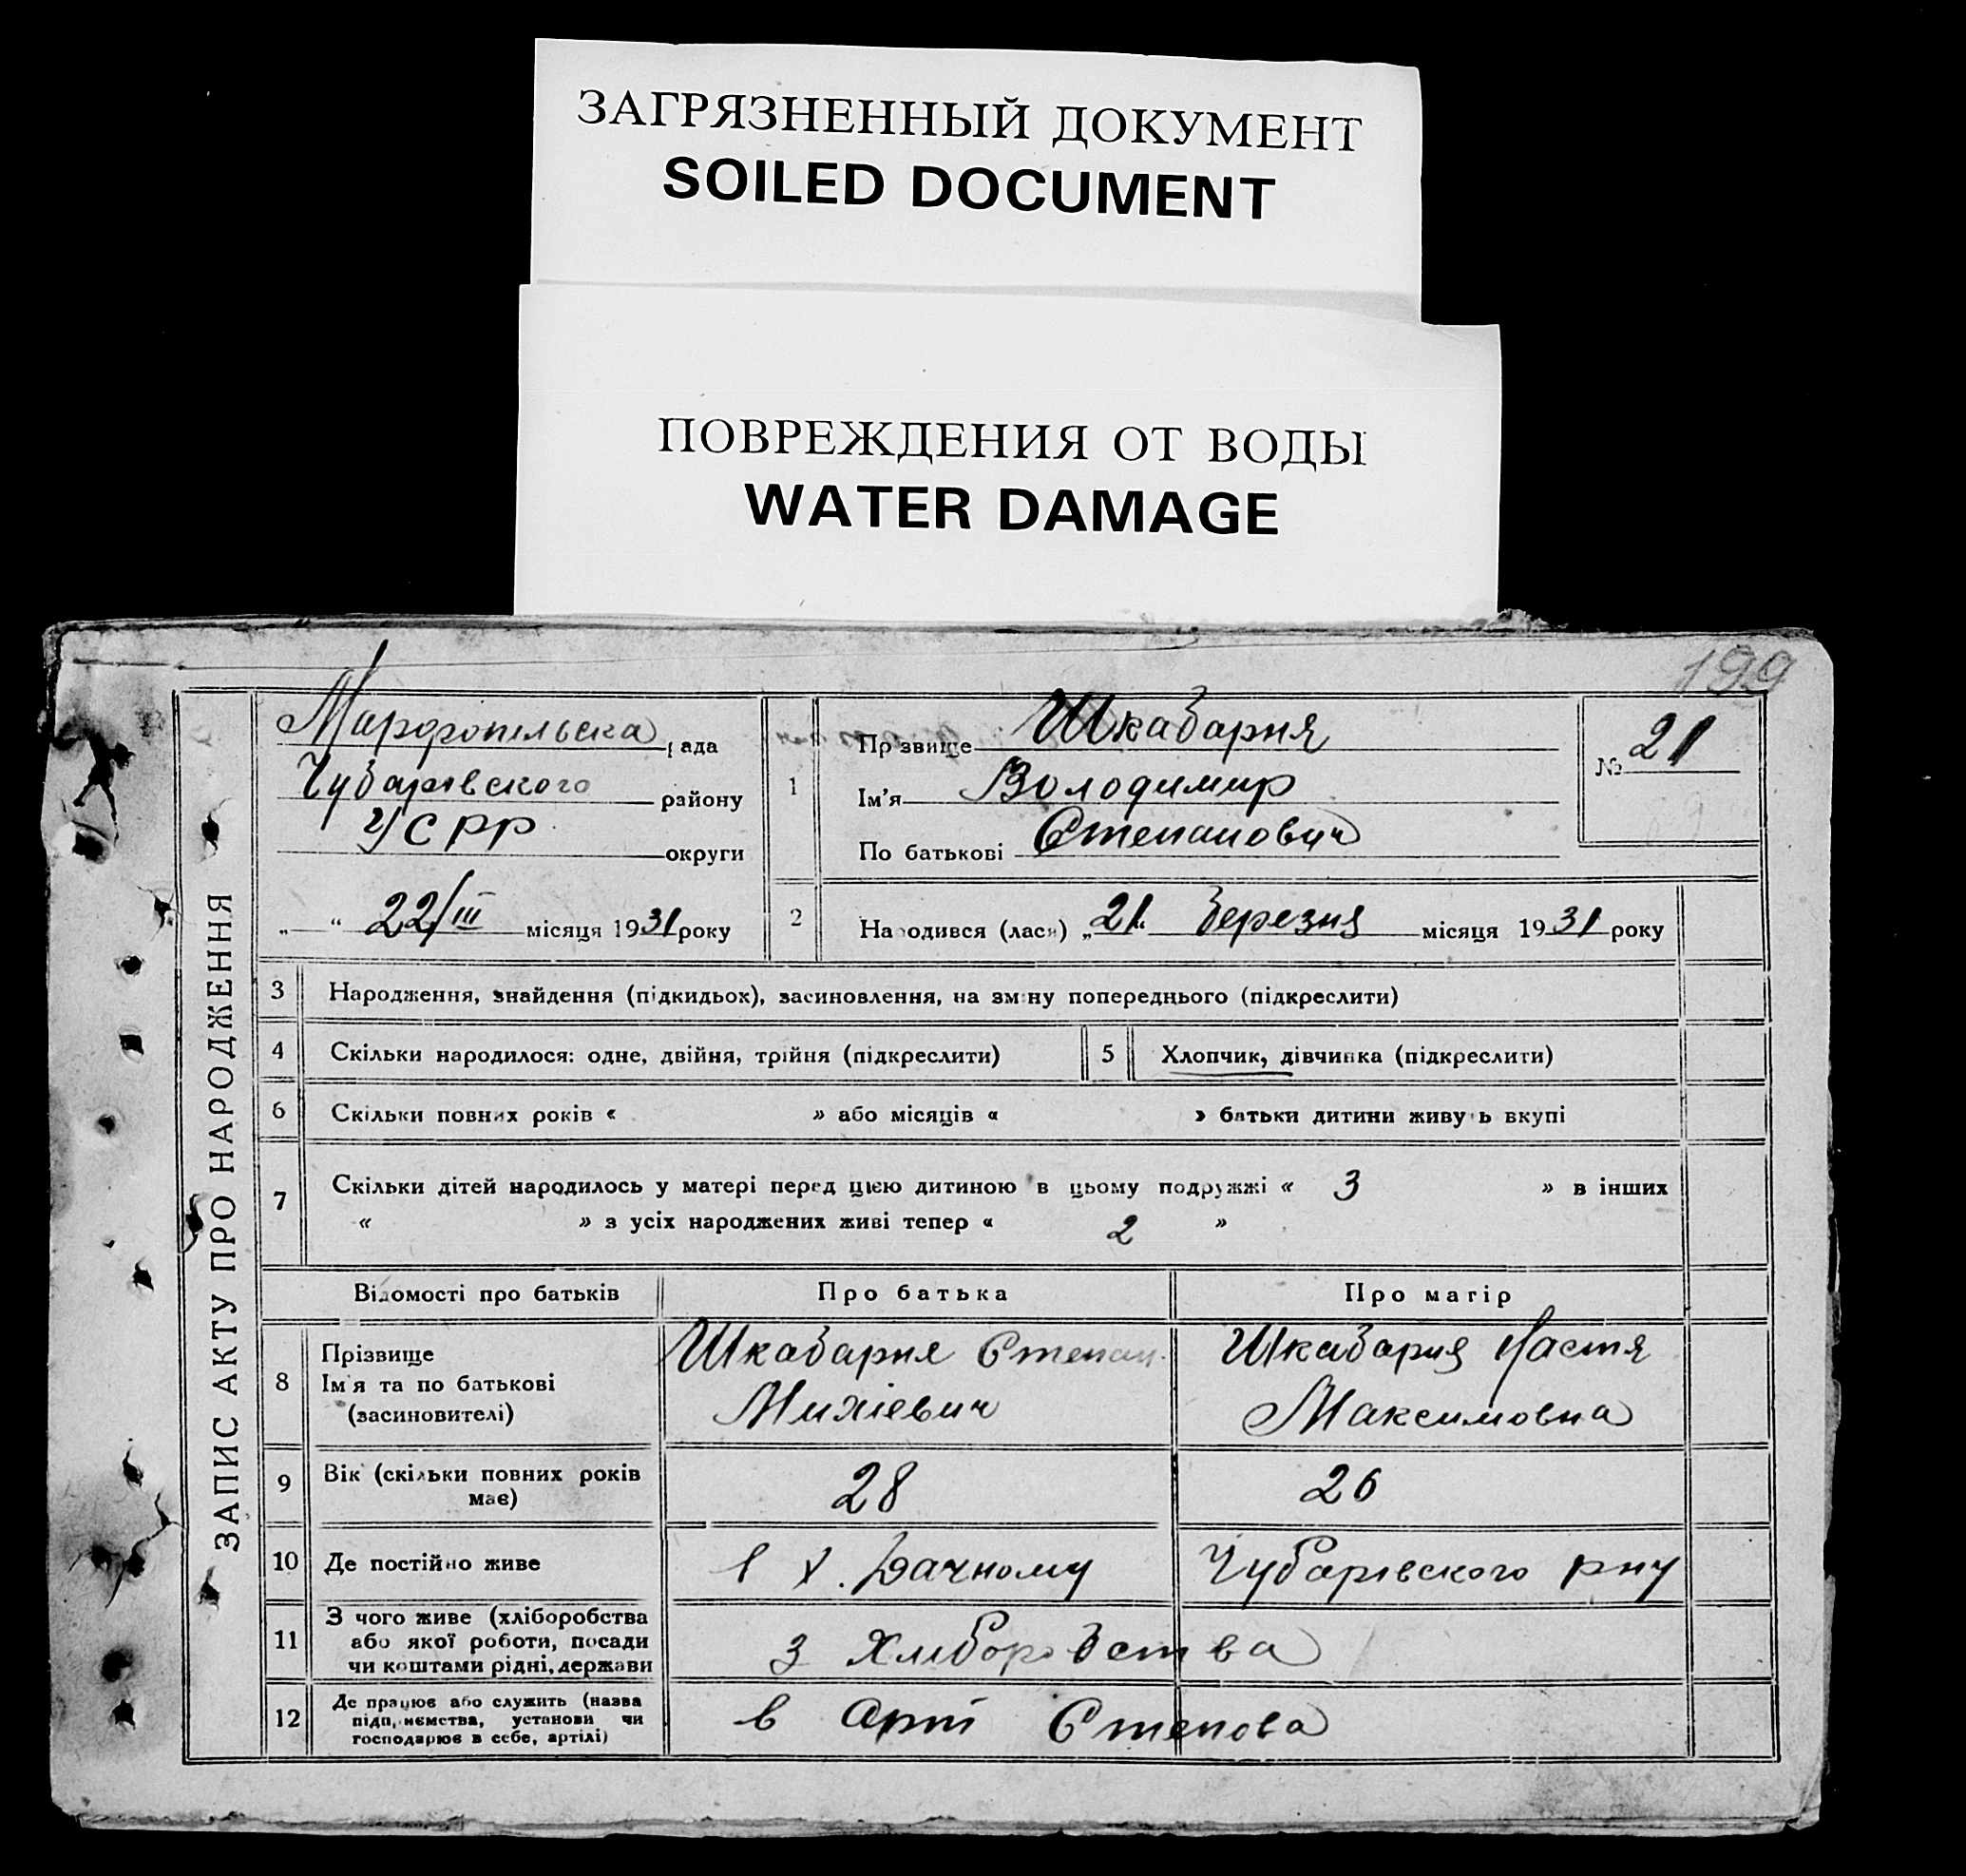 ЗАГРЯЗНЕННЫЙ ДОКУМЕНТ
SOILED DOCUMENT
ПОВРЕЖДЕНИЯ ОТ ВОДЫ
WATER DAMAGE
199
ЗАПИС АКТУ ПРО НАРОДЖЕННЯ
Марфопільська рада
Чубарівського району
УСРР округи
„ “ 22/III місяця 1931 року
1
Прізвище Шкабарня
Ім'я Володимир
По батькові Степанович
№ 21
2 Народився (лася) „21“ Березня місяця 1931 року
3 Народження, знайдення (підкидьох), засиновлення, на зміну попереднього (підкреслити)
4 Скільки народилося: одне, двійня, трійня (підкреслити) 5 Хлопчик, дівчинка (підкреслити)
6 Скільки повних років « » або місяців « » батьки дитини живуть вкупі
7 Скільки дітей народилось у матері перед цією дитиною в цьому подружжі « 3 » в інших
« » з усіх народжених живі тепер « 2 »
Відомості про батьків Про батька Про матір
8 Прізвище
Ім'я та по батькові
(засиновителі)
Шкабарня Степан
Шкабарня Настя
Максимовна
9 Вік (скільки повних років
має)
28 26
10 Де постійно живе в х. Дачному Чубарівского рну
11 З чого живе (хліборобства
або якої роботи, посади
чи коштами рідні, держави
з Хліборобства
12 Де працює або служить (назва
підприємства, установи чи
господарює в себе, артілі)
в Арті Степова